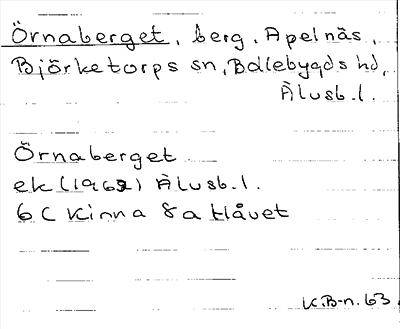 Örnaberget, berg, Apelnäs,
Björketorps sn, Bollebygds hd,
Älvsb. l.
Örnaberget
ek (1962) Älvsb. l.
6 C Kinna 8 a Håvet
K.B-n. 63